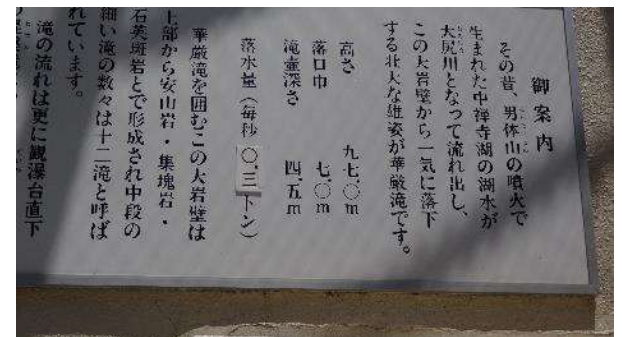 御案内
その昔、男体山の噴火で
生まれた中禅寺湖の湖水が
大尻川となって流れ出し、
この大岩壁から一気に落下
する壮大な雄姿が華厳滝です。
高さ 九七.〇m
落口巾 七.〇m
滝壷深さ 四.五m
落水量(毎秒〇.三トン)
華厳滝を囲むこの大岩壁は
上部から安山岩・集塊岩・
石英斑岩とで形成され中段の
細い滝の数々は十二滝と呼ば
れています。
滝の流れは更に観瀑台直下